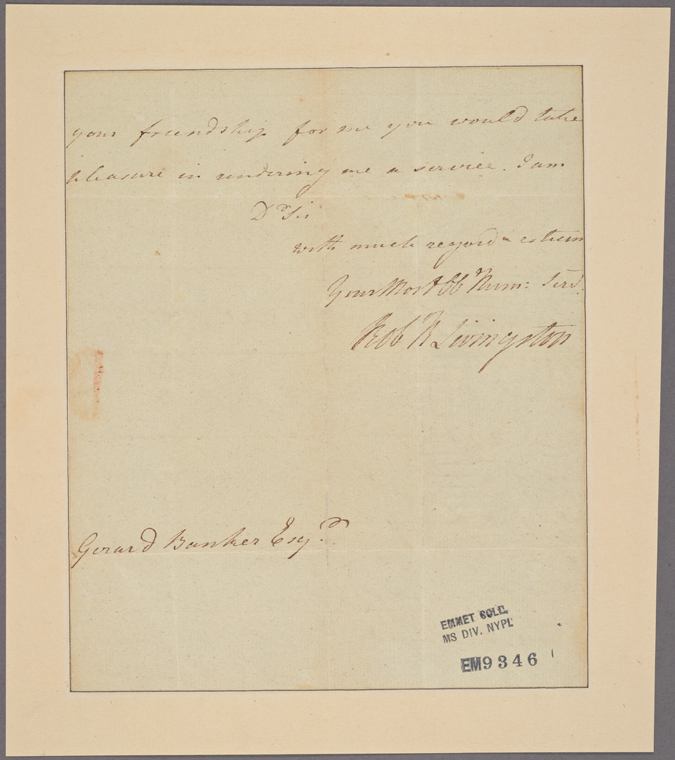 your friendship for me you would take
pleasure in rendering me a service. I am
Dr Sir
with much regard & esteem
Your Most Obt Hum: Serv.
Rob R Livingston
Gerard Banker Esqr.
EMMET COLL.
MS DIV. NYPL
EM9346